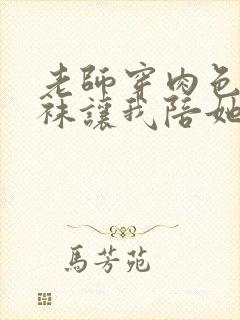 老師穿肉色
襪讓我陪她
馬芳苑